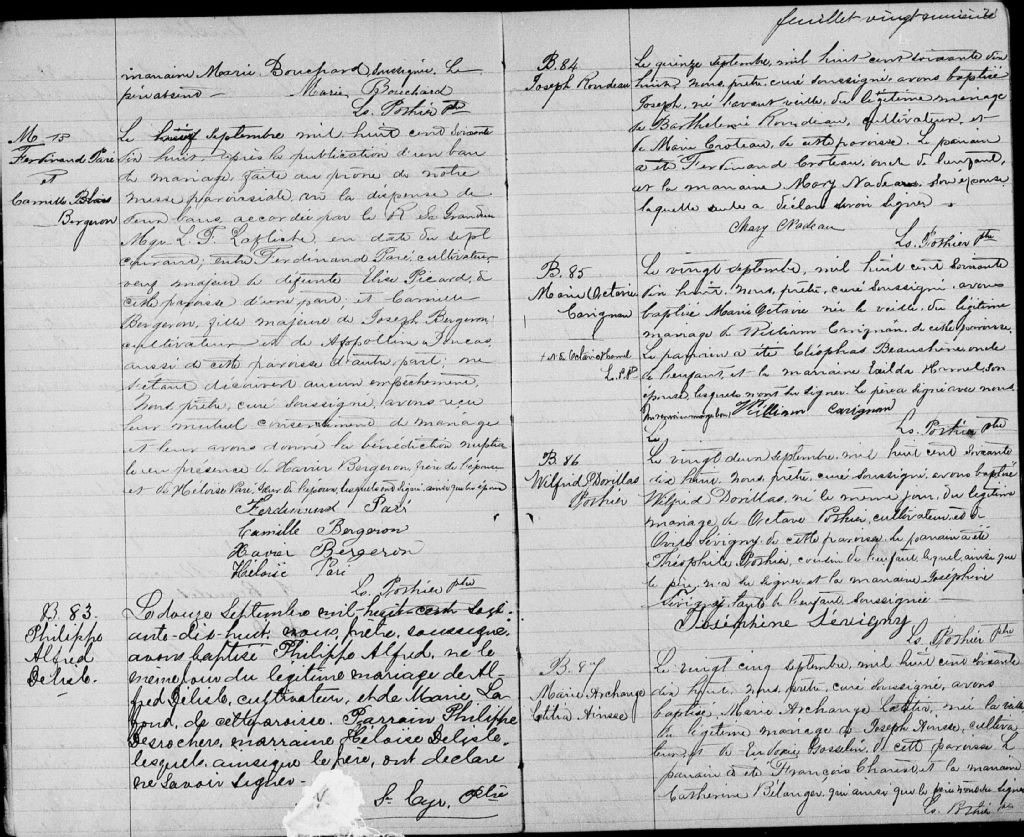 marraine Marie Bouchard, soussignée. Le
père absent — Marie Bouchard
Ls. Pothier ptre
M 13
Ferdinand Paré
et
Camille
Bergeron
Le Septembre mil huit cent soixante
dix huit, après la publication d'un ban
de mariage, faite au prône de notre
messe paroissiale, vu la dispense de
deux bans, accordée par le R. Sa Grandeur
Mgr. L. F. Laflèche, en date du sept
courant; entre Ferdinand Paré, cultivateur
veuf majeur de défunte Elise Picard, de
cette paroisse d'une part; et Camille
Bergeron, fille majeure de Joseph Bergeron,
cultivateur et de Appolline
aussi de cette paroisse d'autre part; ne
s'étant découvert aucun empêchement,
Nous prêtre, curé soussigné, avons reçu
leur mutuel consentement de mariage
et leur avons donné la bénédiction nuptia
le en présence de Xavier Bergeron, frère de l'épouse
et de Héloïse Paré, soeur de l'époux, lesquels ont signé ainsi que les époux
Ferdinand Paré
Camille Bergeron
Xavier Bergeron
Héloïse Paré
L. Pothier ptre
B. 83.
Philippe
Alfred
Delisle.
Le douze Septembre mil-huit-cent soix-
ante-dix-huit, nous, prêtre, soussigné,
avons baptisé Philippe Alfred, né le
même jour du légitime mariage de Al-
fred Delisle, cultivateur, et de Marie La-
fond, de cette paroisse. Parrain Philippe
Desrochers, marraine Héloïse Delisle,
lesquels, ainsi que le père, ont déclaré
ne savoir signer.-
St. Cyr, Ptre
feuillet vingt
B. 84
Joseph Rondeau
Le quinze septembre, mil huit cent soixante dix
huit, nous, prêtre, curé soussigné, avons baptisé
Joseph, né l'avant veille, du légitime mariage
de Barthelemie Rondeau, cultivateur, et
de Marie Croteau, de cette paroisse. Le parrain
a été Ferdinand Croteau, oncle de l'enfant,
et la marraine Mary Nadeau, son épouse
laquelle seule a déclaré savoir signer
Mary Nadeau
Ls. Pothier ptre
B. 85
Marie Octavie
Carignan
+ et de Octavie Hamel
L. P. Ptre
Le vingt septembre, mil huit cent soixante
dix huit, nous, prêtre, curé soussigné, avons
baptisé Marie Octavie née la veille, du légitime
mariage de William Carignan, de cette paroisse.
Le parrain a été Cléophas Beauchêne oncle
de l'enfant, et la marraine Exilda Hamel son
épouse, lesquels n'ont su signer. Le père a signé avec nous.
William Carignan
Ls. Pothier ptre
B. 86
Wilfrid Dorillas
Pothier
Le
Le vingt deux septembre, mil huit cent soixante
dix huit, nous, prêtre, curé soussigné, avons baptisé
Wilfrid Dorillas, né le même jour, du légitime
mariage de Octave Pothier, cultivateur, et de
Sévigny de cette paroisse. Le parrain a été
Théophile Pothier, cousin de l'enfant, lequel, ainsi que
le père, n'a su signer et la marraine Joséphine
Sévigny, tante de l'enfant, soussignée
Josephine Sévigny
Ls. Pothier ptre
B. 87
Marie Archange
Ainsse
Le vingt cinq septembre, mil huit cent soixante
dix huit, nous, prêtre, curé, soussigné, avons
baptisé, Marie Archange née la veille
du légitime mariage de Joseph Ainsse, cultiva
teur et de Eudoxie Gosselin, de cette paroisse. Le
parrain a été François Charest, et la marraine
Catherine Bélanger, qui ainsi que le père n'ont su signer
Ls. Pothier ptre